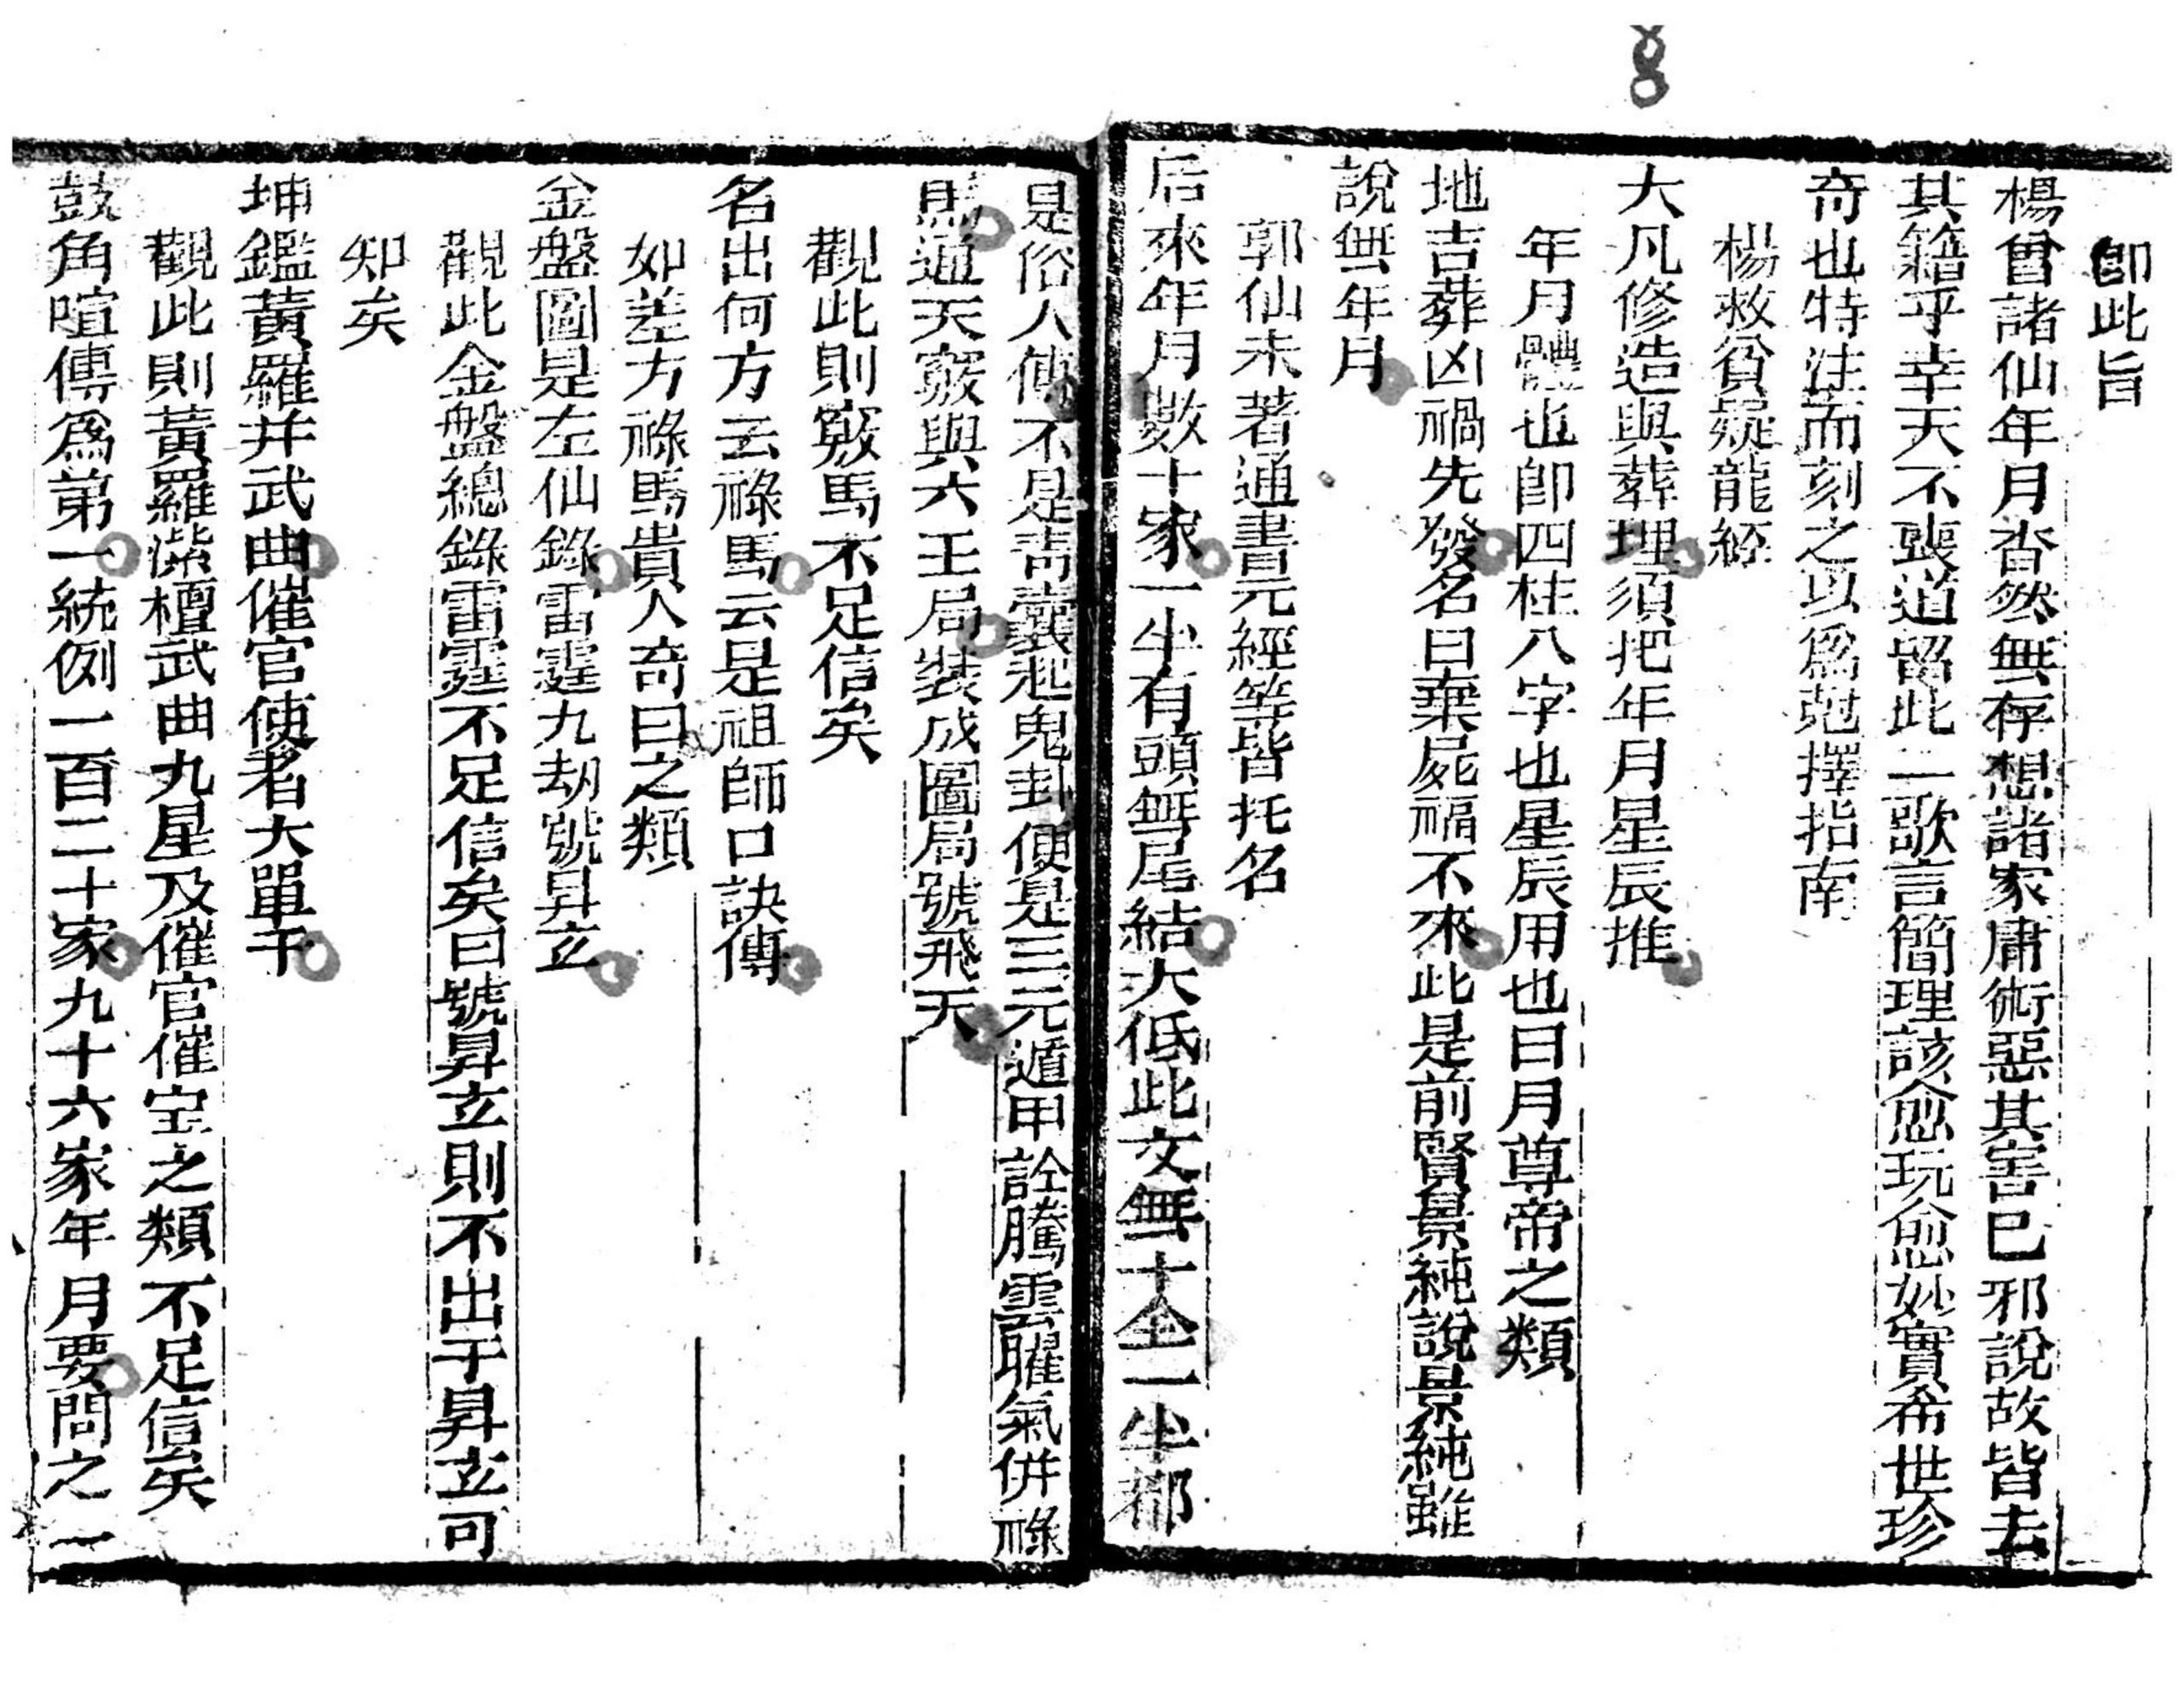 卽此旨
楊曾諸仙年月杳然無存想諸家庸術惡其害巳邪說故皆去
其籍乎幸天不喪道留此二歌言簡理該愈玩愈妙實希世珍
奇也特注而刻之以爲尅擇指南
楊救貧疑龍經
大凡修造與葬埋須把年月星辰推
年月體也卽四柱八字也星辰用也日月尊帝之類
地吉葬凶禍先發名曰棄屍福不來此是前賢景純說景純雖
說無年月
郭仙未著通書元經等皆托名
后來年月數十家一半有頭無尾結大低此文無十全一半都
是俗人傳不是靑囊起鬼卦便是三元遁甲詮騰雲曜氣併祿
馬通天竅與六壬局裝成圖局號飛天
觀此則竅馬不足信矣
名出何方云祿馬云是祖師口訣傳
如差方祿馬貴人奇曰之類
金盤圖是左仙錄雷霆九刼號昇玄
觀此金盤總錄雷霆不足信矣曰號昇玄則不出于昇玄可
知矣
坤鑑黃羅并武曲催官使者大單于
觀此則黃羅紫檀武曲九星及催官催宝之類不足信矣
鼓角喧傳爲第一統例一百二十家九十六家年月要問之一